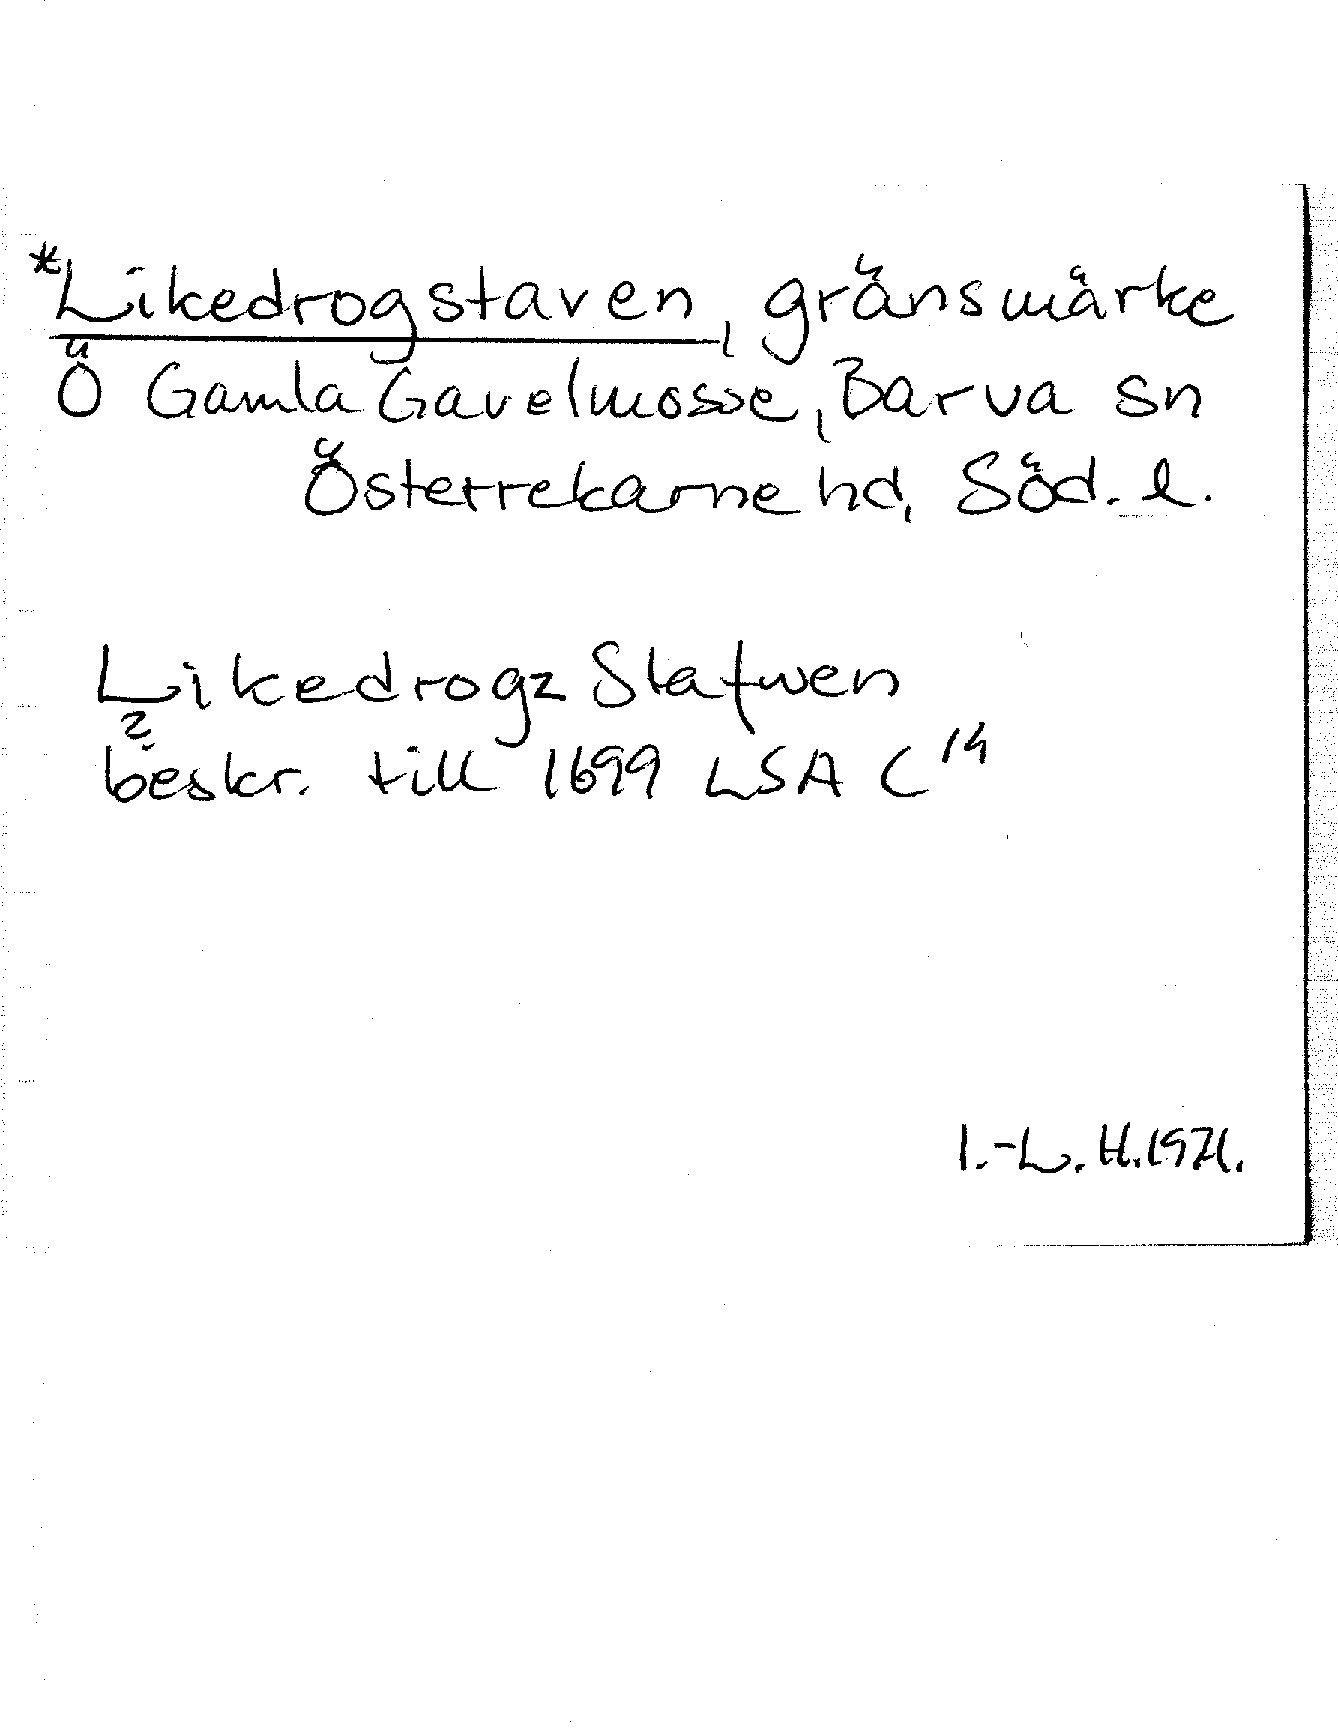 *Likedrogstaven, gränsmärke
Ö Gamla Gavelmosse, Barva sn
Österrekarne hd, Söd. l.
Likedrogz Stafwen
?
beskr. till 1699 LSA C 14
I.-L. H. 1971.